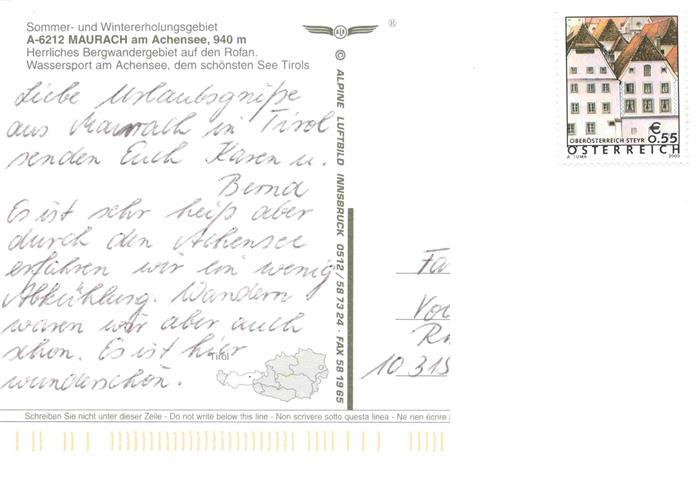 Sommer- und Wintererholungsgebiet
A-6212 MAURACH am Achensee, 940 m
Herrliches Bergwandergebiet auf den Rofan.
Wassersport am Achensee, dem schönsten See Tirols
Liebe Urlaubsgrüße
aus Maurach in Tirol
senden Euch Karen u.
Bernd
Es ist sehr heiß aber
durch den Achensee
erfahren wir ein wenig
Abkühlung. Wandern
waren wir aber auch
schon. Es ist hier
wunderschön.
Tirol
Schreiben Sie nicht unter dieser Zeile - Do not write below this line - Non scrivere sotto questa linea - Ne rien écrire
®
© ALPINE LUFTBILD INNSBRUCK 0512/58 73 24 · FAX 58 19 85
€
0.55
OBERÖSTERREICH STEYR
ÖSTERREICH
A. TUMA 2003
Fa
Vo
R
10 315